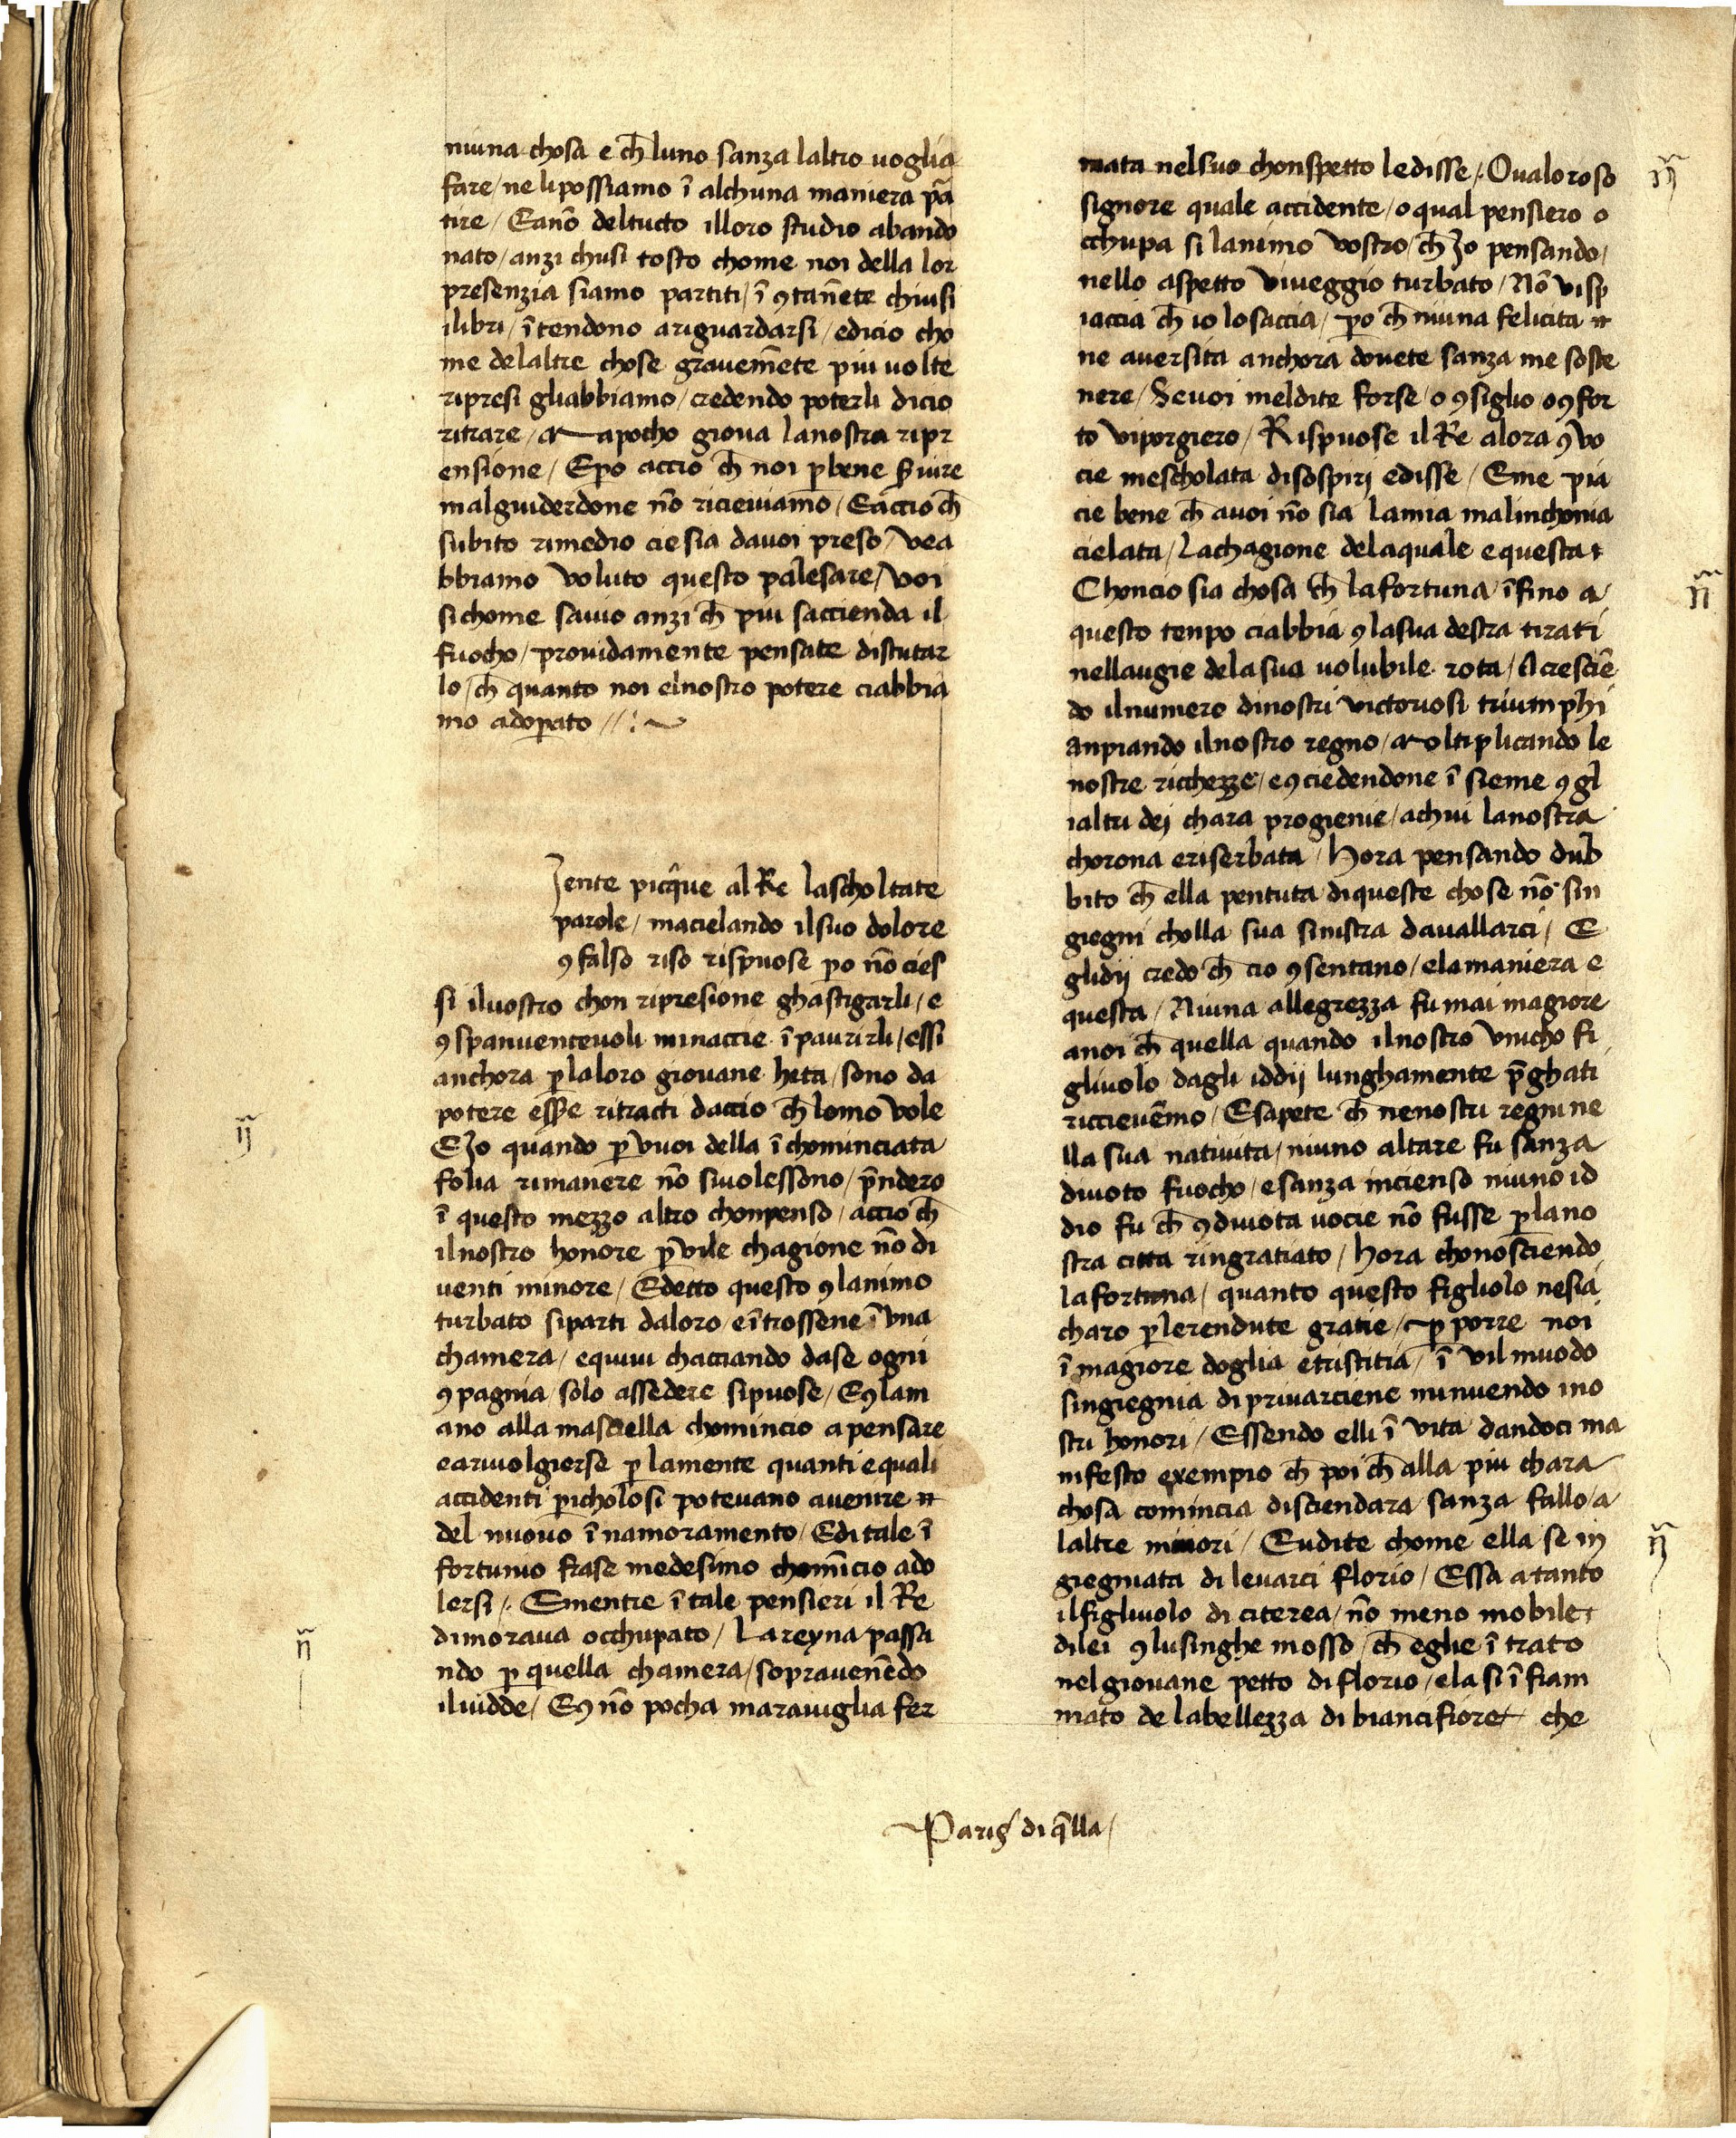 niuna chosa e ch̄ luno sanza laltro uoglia
fare / ne li possiamo ī alchuna maniera pā
tire / Eanō deltucto illoro studio abando
nato / anzi chusi tosto chome noi della lor
presenzia siamo partiti / ī ꝯtanēte chiusi
ilibri / ītendono ariguardarsi / edicio cho
me delaltre chose grauemēte piu uolte
ripresi gliabbiamo / credendo poterli dicio
ritrare / Mapocho gioua lanostra ripr
ensione / Epo accio ch̄ noi ꝑbene s̄uire
malguiderdone nō riceuiamo / Eaccio ch̄
subito rimedio ciesia dauoi preso / vea
bbiamo voluto questo palesare / voi
sichome sauio anzi ch̄ piu saccienda il
fuocho / prouidamente pensate distutar
lo / ch̄ quanto noi elnostro potere ciabbia
mo adoꝑato //:~
Jente picq̄ue al Re lascholtate
parole / macielando ilsuo dolore
ꝯ falso riso rispuose po nō cies
si iluostro chon ripresione ghastigarli / e
ꝯ spanuenteuoli minaccie īpaurirli / essi
anchora ꝑlaloro giouane heta / sono da
potere esse ritracti daccio ch̄ lomo vole
EJo quando ꝑ vuoi della īchominciata
folia rimanere nō siuolessono / p̄ndero
ī questo mezzo altro chonpenso / accio ch̄
ilnostro honore ꝑ vile chagione nō di
uenti minore / Edetto questo ꝯlanimo
turbato siparti daloro / eītrossene ī vna
chamera / equiui chacciando dase ogni
ꝯpagnia / solo assedere sipuose / Eꝯlam
ano alla masciella chomincio apensare
eariuolgierse ꝑ lamente quanti e quali
accidenti ꝑicholosi poteuano auenire
del nuouo īnamoramento / Editale ī
fortunio frase medesimo chomīcio ado
lersi /. Ementre ītale pensieri il Re
dimoraua occhupato / Lareyna passa
ndo ꝑ quella chamera / soprauenēdo
iluidde / Eꝯ nō pocha marauiglia fer
mata nelsuo chonspetto ledisse /. Oualoroso
signore quale accidente / o qual pensiero o
cchupa si lanimo vostro / ch̄ Jo pensando /
nello aspetto viueggio turbato / Nō visp
iaccia ch̄ io losaccia / po ch̄ niuna felicita
ne auersita anchora douete sanza me soste
nere / Seuoi meldite forse / o ꝯsiglio / oꝯfor
to viporgiero / Rispuose il Re alora ꝯ vo
cie mescholata disospirj edisse / Eme pia
cie bene ch̄ auoi nō sia lamia malinchonia
cielata / Lachagione delaquale e questa
Choncio sia chosa ch̄ lafortuna / īfino a
questo tenpo ciabbia ꝯlasua destra tirati
nellaugie delasua uolubile rota / Acresciē
do ilnumero dinostri victoriosi triumphi
anpiando ilnostro regno / Moltiplicando le
nostre ricchezze / eꝯciedendone ī sieme ꝯ gl
ialtri dej chara progienie / achui lanostra
chorona eriserbata / Hora pensando dub
bito ch̄ ella pentuta diqueste chose nō sin
giegni cholla sua sinistra dauallarci / E
glidij credo ch̄ cio ꝯsentano / elamaniera e
questa / Niuna allegrezza fu mai magiore
anoi ch̄ quella quando ilnostro vnicho fi
gliuolo dagli iddij lunghamente p̄ghati
riccieuēmo / Esapete ch̄ nenostri regni ne
lla sua natiuita / niuno altare fu sanza
diuoto fuocho / esanza incienso niuno id
dio fu ch̄ ꝯdiuota uocie nō fusse ꝑlano
stra citta ringratiato / Hora chonosciendo
lafortuna / quanto questo figliuolo nesia
charo ꝑlerendute gratie / ꝑ porre noi
ī magiore doglia etristitia / ī vil muodo
singiegnia di priuarciene minuendo ino
stri honori / Essendo elli ī vita dandoci ma
nifesto exempio ch̄ poi ch̄ alla piu chara
chosa comincia disciendara sanza fallo / a
laltre minori / Eudite chome ella se in
giegniata di leuarci florio / Essa a tanto
ilfigliuolo di citerea / nō meno mobile
dilei ꝯlusinghe mosso / ch̄ eglie ītrato
nelgiouane petto di florio / ela si īfiam
mato de labellezza di biancifiore che
Parigͥ di q̄lla /